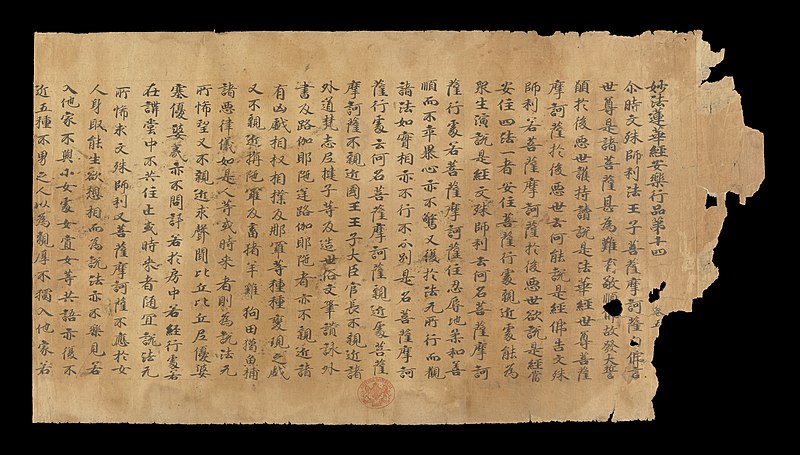 妙法蓮華經安樂行品第十四 卷五
尒時文殊師利法王子菩薩摩訶薩佛言
世尊是諸菩薩甚為難有敬順佛故發大誓
願於後惡世護持讀說是法華經世尊菩薩
摩訶薩於後惡世云何能說是經佛告文殊
師利若菩薩摩訶薩於後惡世欲說是經當
安住四法一者安住菩薩行處親近處能為
眾生演說是經文殊師利云何名菩薩摩訶
薩行處若菩薩摩訶薩住忍辱地柔和善
順而不卒暴心亦不驚又復於法无所行而觀
諸法如實相亦不行不分別是名菩薩摩訶
薩行處云何名菩薩摩訶薩親近處菩薩
摩訶薩不親近國王王子大臣官長不親近諸
外道梵志尼揵子等及造世俗文筆讚詠外
書及路伽耶陁逆路伽耶陁者亦不親近諸
有凶戲相扠相撲及那羅等種種變現之戲
又不親近旃陁羅及畜猪羊雞狗田獵魚捕
諸惡律儀如是人等或時來者則為說法无
所悕望又不親近求聲聞比丘比丘尼優婆
塞優婆夷亦不問訊若於房中若經行處若
在講堂中不共住止或時來者隨宜說法无
所悕求文殊師利又菩薩摩訶薩不應於女
人身取能生欲想相而為說法亦不樂見若
入他家不與小女處女寡女等共語亦復不
近五種不男之人以為親厚不獨入他家若